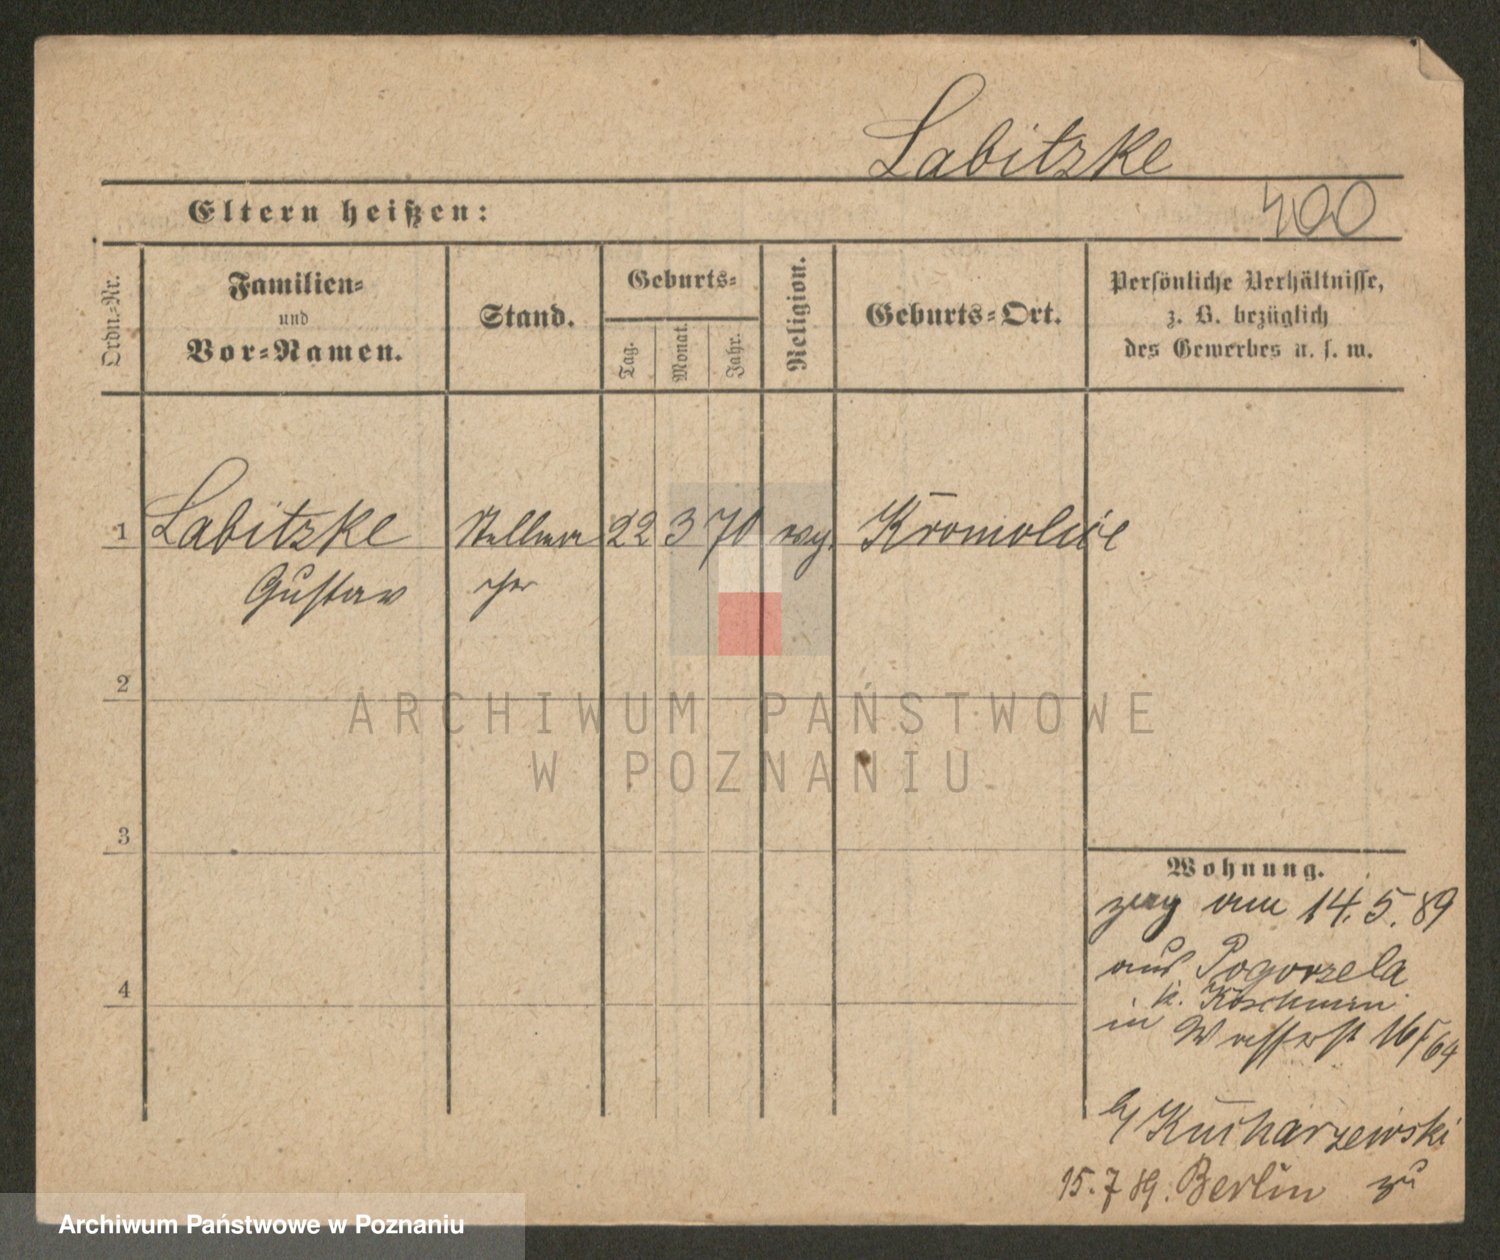 Labitzke
400
Eltern heißen:
Ordn.-Nr.
Familien-
und
Vor-Namen.
Stand.
Geburts-
Tag.
Monat.
Jahr.
Religion.
Geburts-Ort.
Persönliche Verhältnisse,
z. B. bezüglich
des Gewerbes u. s. w.
1
Labitzke
Gustav
Stellma
cher
22
3
70
evg.
Kromolice
2
ARCHIWUM PAŃSTWOWE
W POZNANIU
3
4
Wohnung.
zug am 14.5.89
aus Pogorzela
k. Koschmin
in Wasserst 16/64
b/ Kucharzewski
15.7 89. Berlin zu
Archiwum Państwowe w Poznaniu